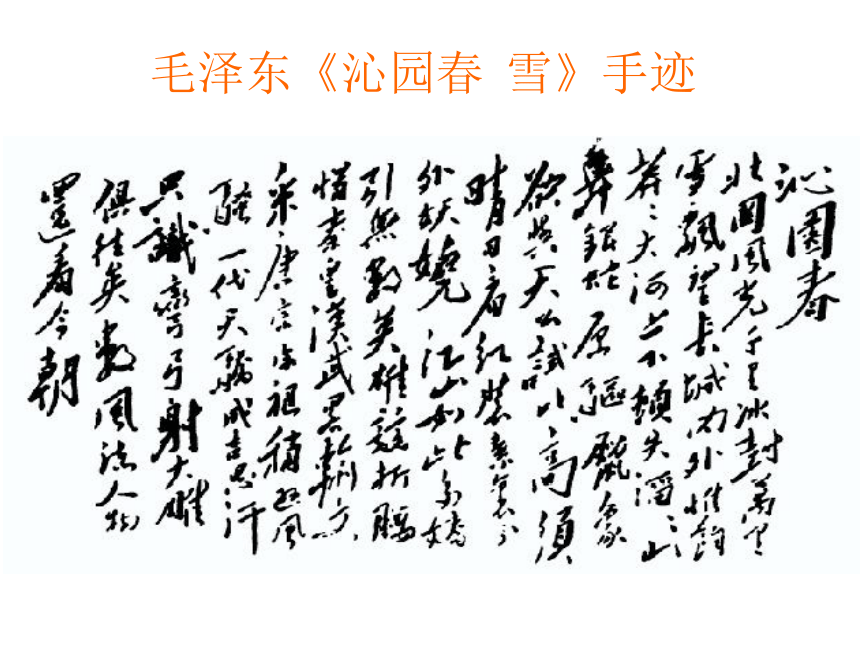 毛泽东《沁园春 雪》手迹
沁園春
北國風光千里冰封萬里
雪飄望長城內外惟餘
莽々大河上下頓失滔々山
舞銀蛇原驅臘象
欲與天公試比高須
晴日看紅裝素裹分
外妖嬈江山如此多嬌
引無數英雄競折腰
惜秦皇漢武略輸文
采唐宗宋祖稍遜風
騷一代天驕成吉思汗
只識彎弓射大雕
俱往矣數風流人物
還看今朝